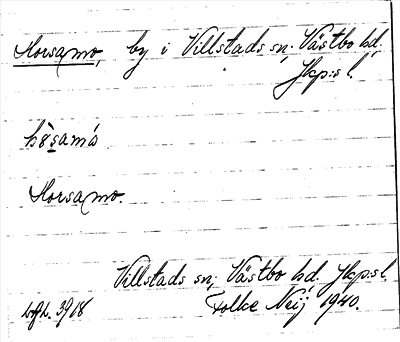 Horsamo, by i Villstads sn, Västbo hd.
Jkp:s l.
hòsamó
Horsamo.
Villstads sn, Västbo hd. Jkp:s l.
3918 Folke Neij 1940.